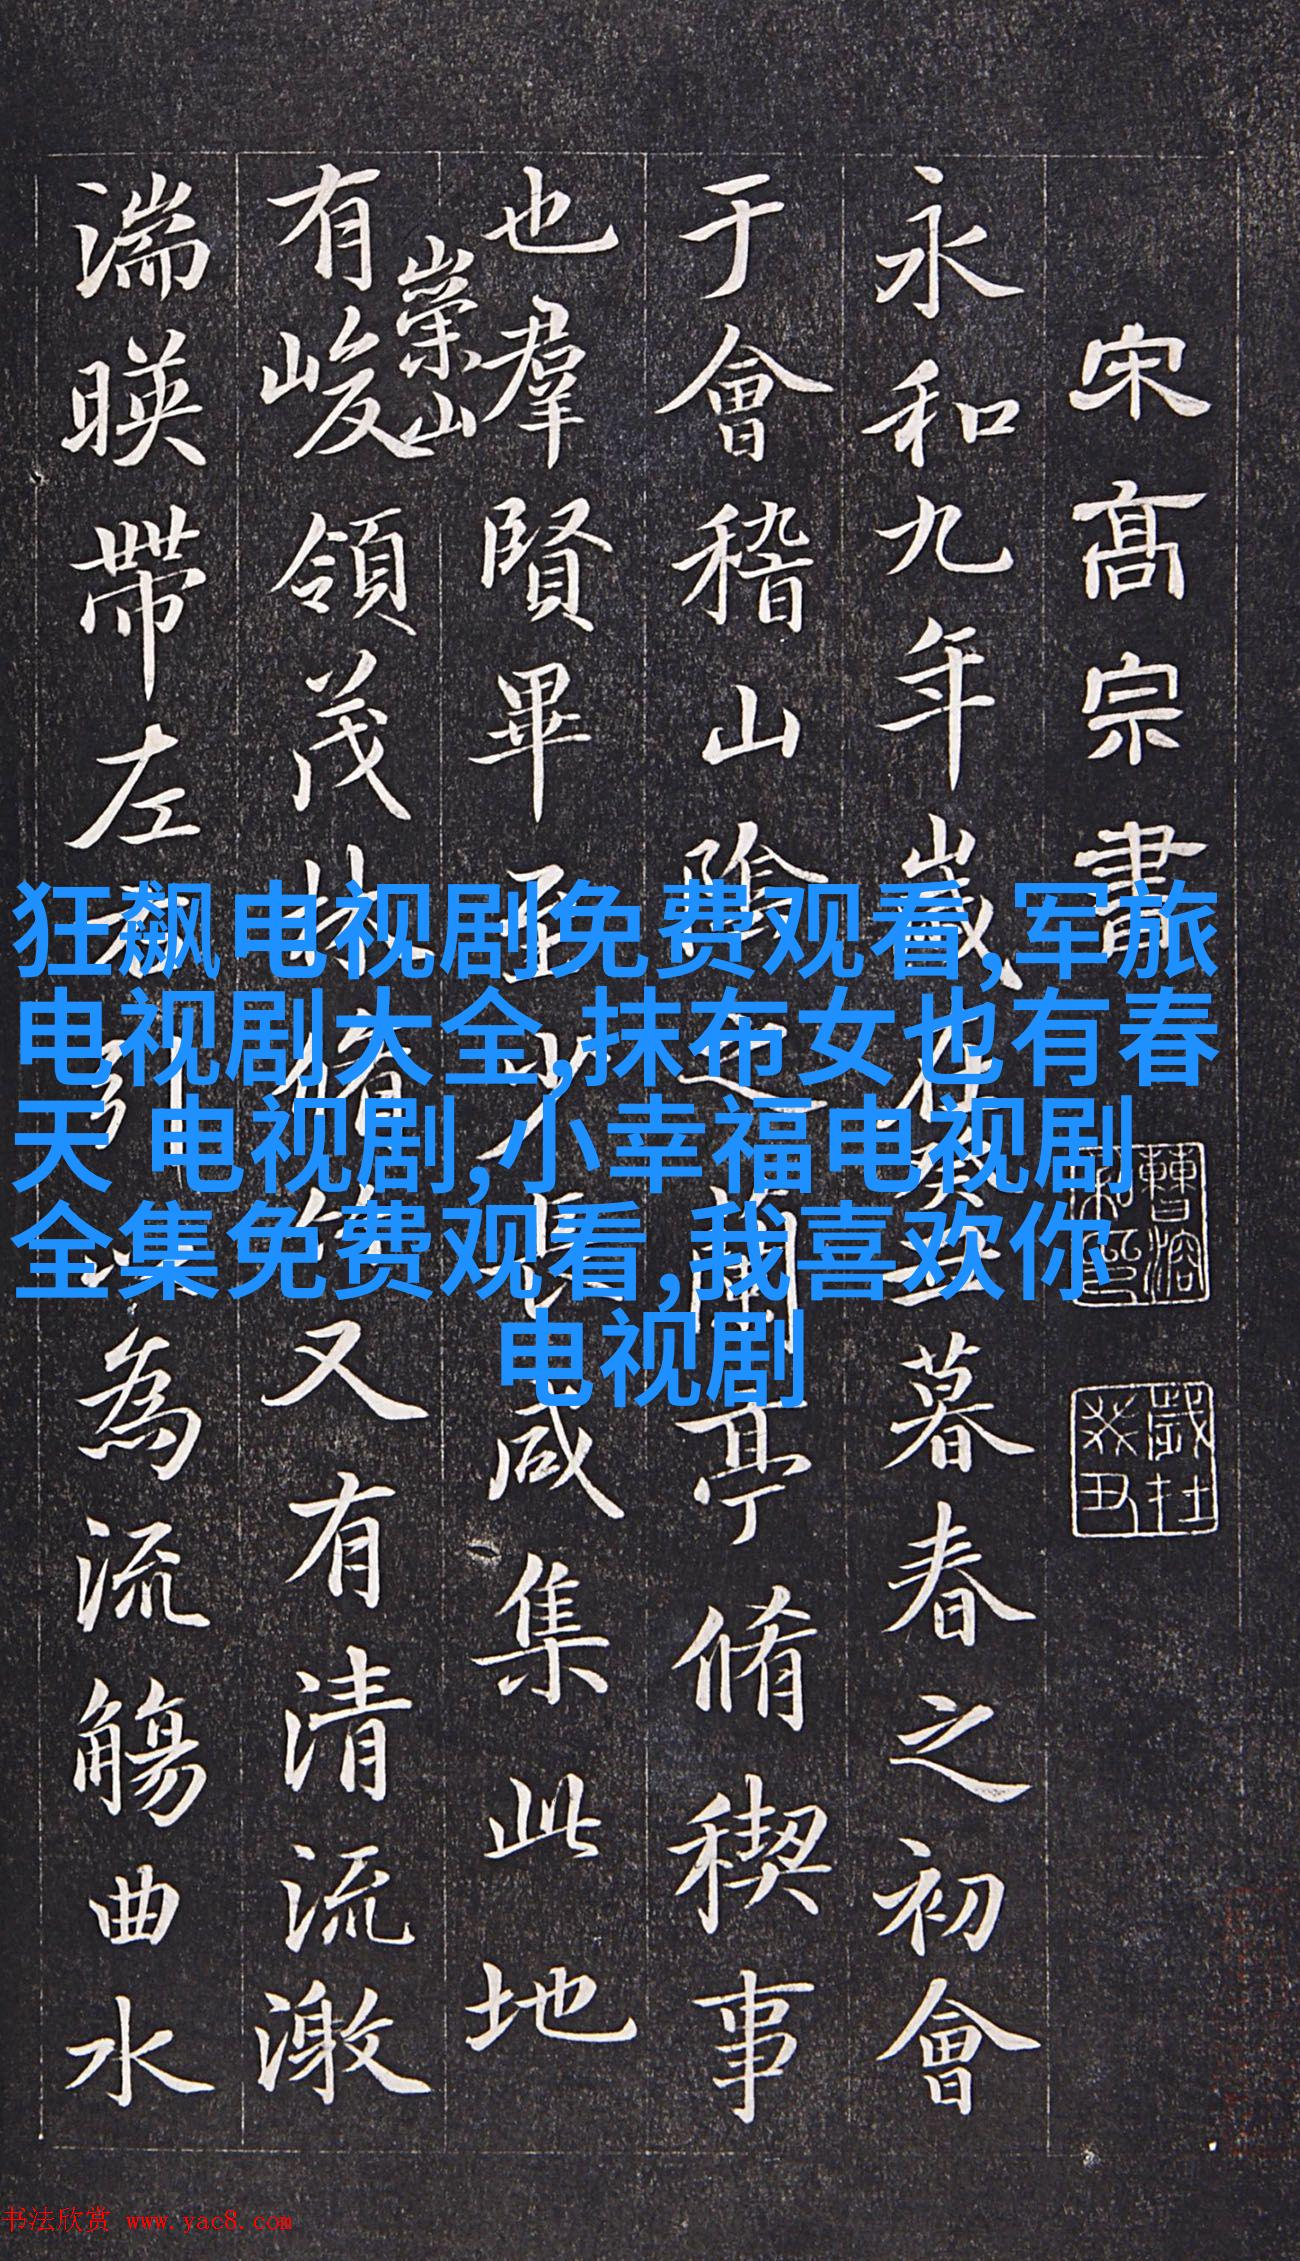 宋高宗書
歲在癸丑
永和九年歲在癸丑暮春之初會
于會稽山陰之蘭亭脩稧事
也羣賢畢至少長咸集此地
崇山
有峻領茂林脩竹又有清流激
湍暎帶左右引以為流觴曲水
狂飙电视剧免费观看,军旅
电视剧大全,抹布女也有春
天 电视剧,小幸福电视剧
全集免费观看,我喜欢你
电视剧
书法欣赏 www.yac8.com